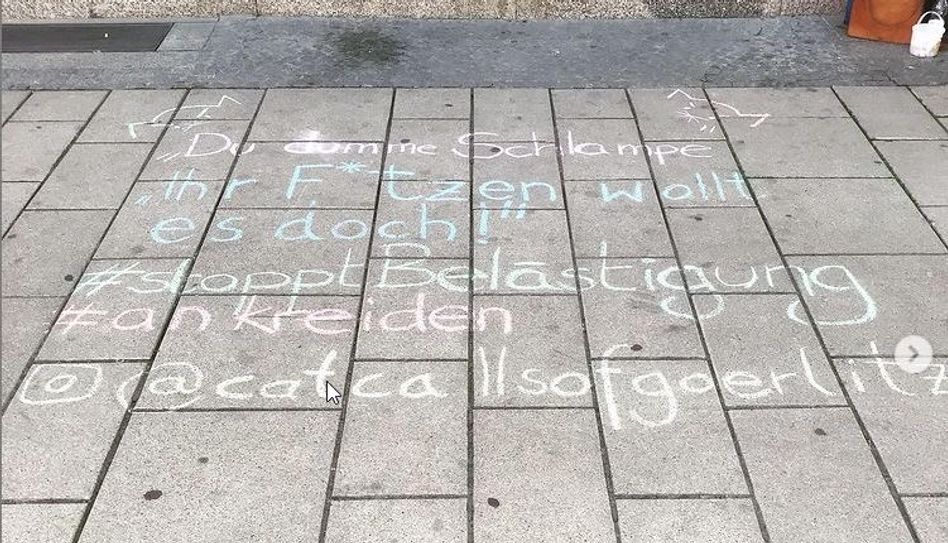 „Du dumme Schlampe
„Ihr F*tzen wollt
es doch!“
#stopptBelästigung
#ankreiden
@catcallsofgoerlitz